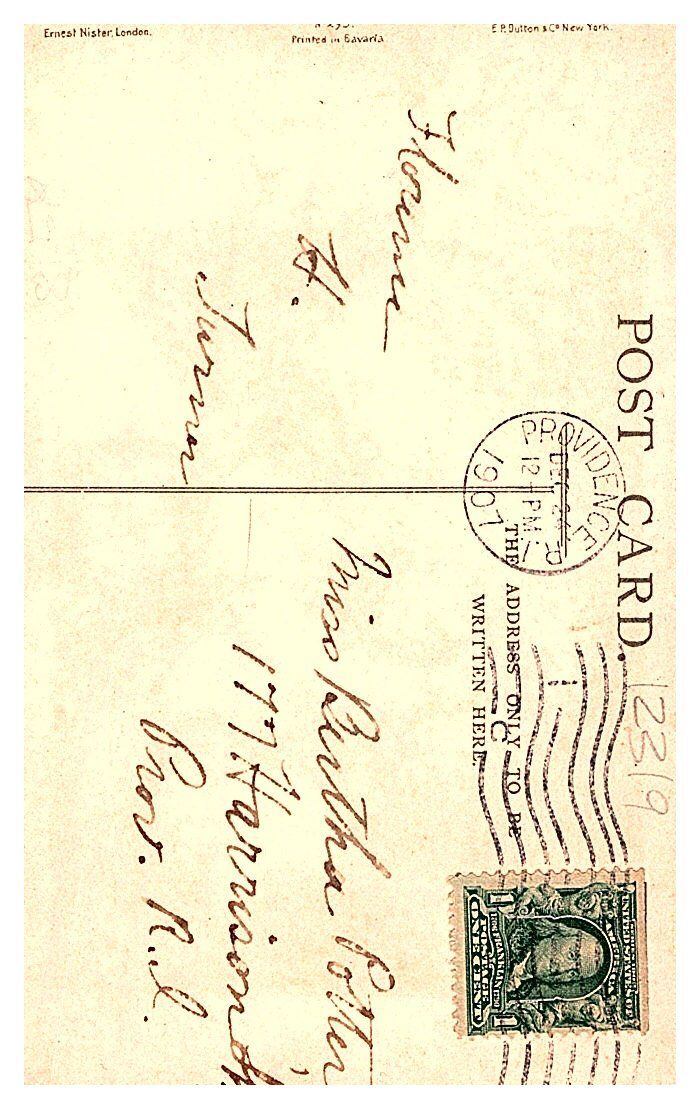 Ernest Nister, London.
Printed in Bavaria
E.P. Dutton & Co New York.
POST CARD.
THE ADDRESS ONLY TO BE
WRITTEN HERE
PROVIDENCE, R.I.
DEC
12-PM
1907
C
2319
Florence
H.
Turner
Miss Bertha Potter
177 Harrison
Prov. R.I.
ONE CENT